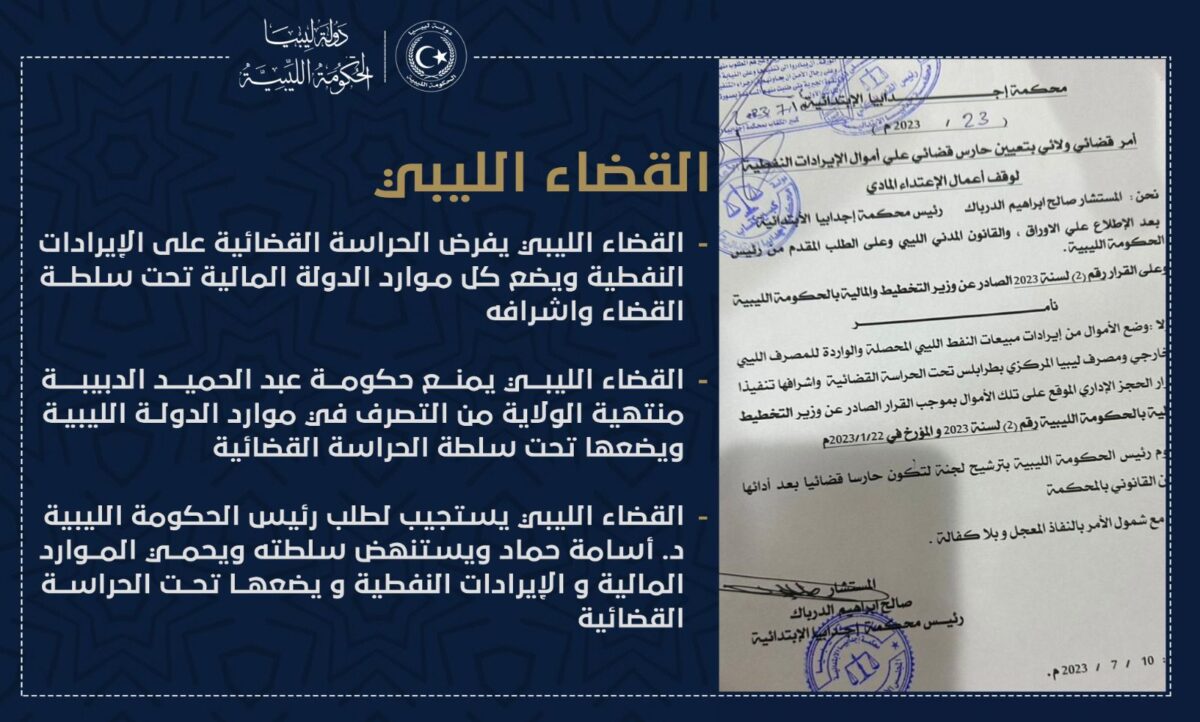 دولة ليبيا
الحكومة الليبية
القضاء الليبي
- القضاء الليبي يفرض الحراسة القضائية على الإيرادات
النفطية ويضع كل موارد الدولة المالية تحت سلطة
القضاء واشرافه
- القضاء الليبي يمنع حكومة عبد الحميد الدبيبة
منتهية الولاية من التصرف في موارد الدولة الليبية
ويضعها تحت سلطة الحراسة القضائية
- القضاء الليبي يستجيب لطلب رئيس الحكومة الليبية
د. أسامة حماد ويستنهض سلطته ويحمي الموارد
المالية و الإيرادات النفطية و يضعها تحت الحراسة
القضائية
محكمة إجدابيا الإبتدائية
( 23 / 2023 م )
أمر قضائي ولائي بتعيين حارس قضائي علي أموال الإيرادات النفطية
لوقف أعمال الإعتداء المادي
نحن : المستشار صالح ابراهيم الدرباك رئيس محكمة إجدابيا الأبتدائية
بعد الإطلاع علي الاوراق ، والقانون المدني الليبي وعلى الطلب المقدم من رئيس
الحكومة الليبية .
وعلى القرار رقم (2) لسنة 2023 الصادر عن وزير التخطيط والمالية بالحكومة الليبية
نأمر
لا : وضع الأموال من إيرادات مبيعات النفط الليبي المحصلة والواردة للمصرف الليبي
خارجي ومصرف ليبيا المركزي بطرابلس تحت الحراسة القضائية واشرافها تنفيذا
رار الحجز الإداري الموقع على تلك الأموال بموجب القرار الصادر عن وزير التخطيط
لية بالحكومة الليبية رقم (2) لسنة 2023 و المؤرخ في 2023/1/22م
وم رئيس الحكومة الليبية بترشيح لجنة لتكون حارسا قضائيا بعد أدائها
ن القانوني بالمحكمة
مع شمول الأمر بالنفاذ المعجل و بلا كفالة .
المستشار
صالح ابراهيم الدرباك
رئيس محكمة إجدابيا الإبتدائية
: 10 / 7 / 2023 م.